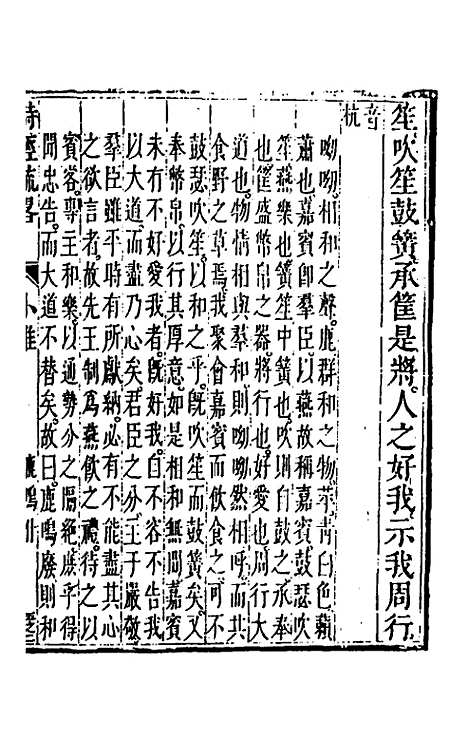 笙吹笙鼓簧承筐是將人之好我示我周行
音杭
呦呦相和之聲鹿群和之物苹青白色藾
蕭也嘉賓卽羣臣以燕故稱嘉賓鼓瑟吹
笙燕樂也簧笙中簧也吹則自鼓之承奉
也筐盛幣帛之器將行也好愛也周行大
道也物情相與羣和則呦呦然相呼而共
食野之草焉我聚會嘉賓而飲食之可不
鼓瑟吹笙以和之乎既吹笙而鼓簧矣又
奉幣帛以行其厚意如是相和無間嘉賓
未有不好愛我者既好我自不容不告我
以大道而盡乃心矣君臣之分主于嚴敬
羣臣雖平時有所獻納必有不能盡其心
之欲言者故先王制爲燕飲之禮待之以
賓客專主和樂以通勢分之隔絶庶乎得
聞忠告而大道不替矣故曰鹿鳴廢則和
詩經疏畧 小雅 鹿鳴什